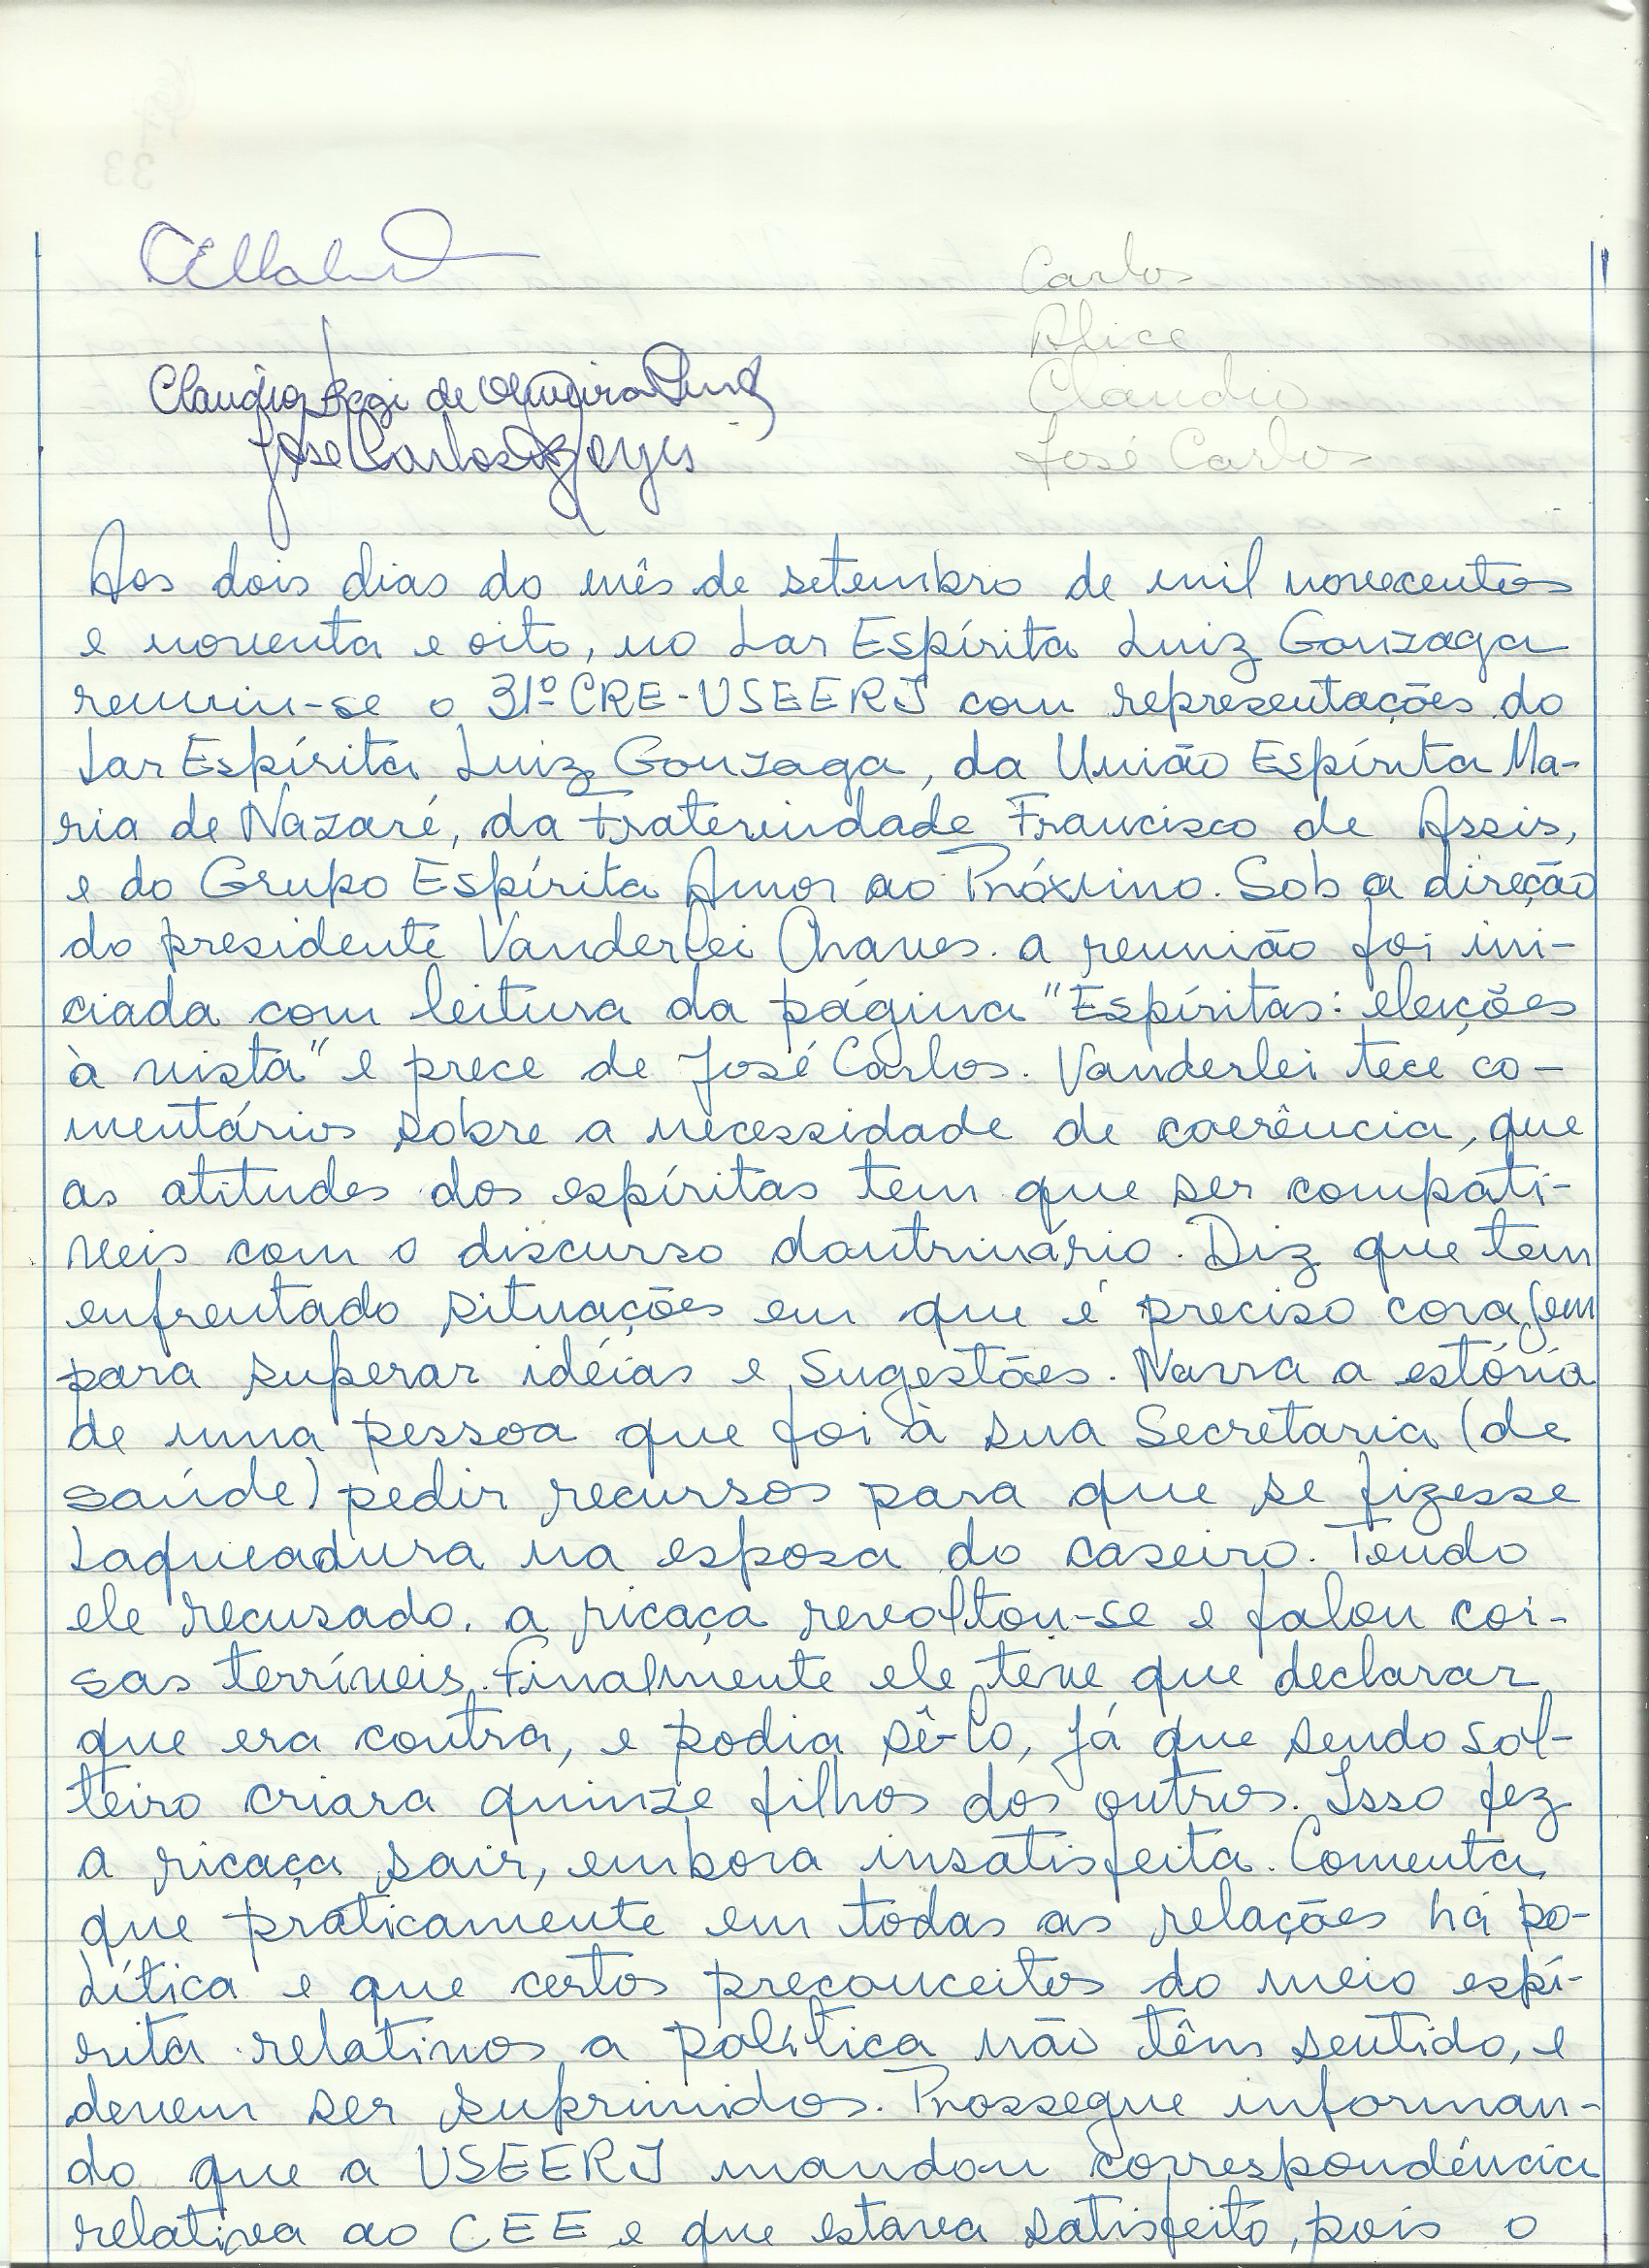 Carlos
Alice
Claudio de Oliveira
Claudio
José Carlos
José Carlos
Aos dois dias do mês de setembro de mil novecentos
e noventa e oito, no Lar Espírita Luiz Gonzaga
reuniu-se o 31º CRE-USEERJ com representações do
Lar Espírita Luiz Gonzaga, da União Espírita Ma-
ria de Nazaré, da Fraternidade Francisco de Assis,
e do Grupo Espírita Amor ao Próximo. Sob a direção
do presidente Vanderlei Chaves. a reunião foi ini-
ciada com leitura da página "Espíritas: eleições
à vista" e prece de José Carlos. Vanderlei tece co-
mentários sobre a necessidade de coerência, que
as atitudes dos espíritas tem que ser compatí-
veis com o discurso doutrinário. Diz que tem
enfrentado situações em que é preciso coragem
para superar idéias e sugestões. Narra a estória
de uma pessoa que foi à sua Secretaria (de
saúde) pedir recursos para que se fizesse
laqueadura na esposa do caseiro. Tendo
ele recusado, a ricaça revoltou-se e falou coi-
sas terríveis. Finalmente ele teve que declarar
que era contra, e podia sê-lo, já que sendo sol-
teiro criara quinze filhos dos outros. Isso fez
a ricaça sair, embora insatisfeita. Comenta
que praticamente em todas as relações há po-
lítica e que certos preconceitos do meio espí-
rita relativos a política não têm sentido, e
devem ser suprimidos. Prossegue informan-
do que a USEERJ mandou correspondência
relativa ao CEE e que estava satisfeito, pois o